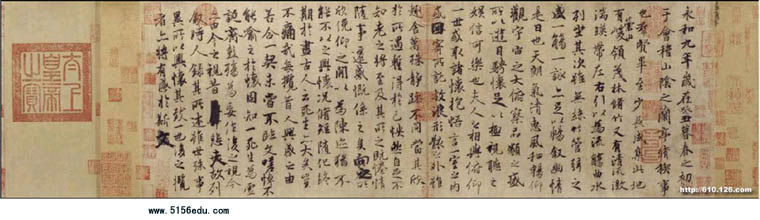 永和九年歲在癸丑暮春之初會
于會稽山陰之蘭亭脩稧事
也羣賢畢至少長咸集此地
有崇山峻領茂林脩竹又有清流激
湍暎帶左右引以為流觴曲水
列坐其次雖無絲竹管弦之
盛一觴一詠亦足以暢敘幽情
是日也天朗氣清惠風和暢仰
觀宇宙之大俯察品類之盛
所以遊目騁懷足以極視聽之
娛信可樂也夫人之相與俯仰
一世或取諸懷抱悟言一室之內
或因寄所託放浪形骸之外雖
趣舍萬殊靜躁不同當其欣
於所遇暫得於己怏然自足不
知老之將至及其所之既惓情
隨事遷感慨係之矣向之所
欣俛仰之閒以為陳迹猶不
能不以之興懷況脩短隨化終
期於盡古人云死生亦大矣豈
不痛哉每攬昔人興感之由
若合一契未嘗不臨文嗟悼不
能喻之於懷固知一死生為虛
誕齊彭殤為妄作後之視今
亦由今之視昔悲夫故列
敘時人錄其所述雖世殊事
異所以興懷其致一也後之攬
者亦將有感於斯文
http://610.126.com
www.5156edu.com